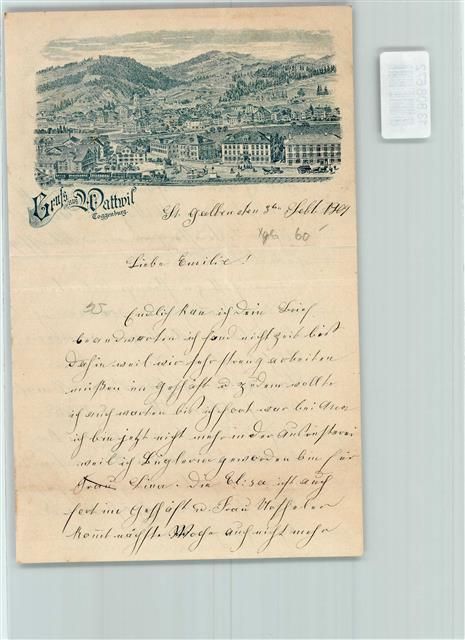 Gruss aus Wattwil
Toggenburg.
St. Gallen den 3ten Sebt. 1901
60
Liebe Emilie!
25
Endlich kan ich dein Brief
beandworten ich fand nicht zeit bis
dahin weil wir sehr streng arbeiten
müßen im Geschäft u zedem wollte
ich auch warten bis ich fort war bei
ich bin jetzt nicht mehr in der Ausrüsterei
weil ich Büglerin geworden bin für
Frau Lina. Die Elisa ist auch
fort im Geschäft u. Frau
komt nächste Woche auch nicht mehr